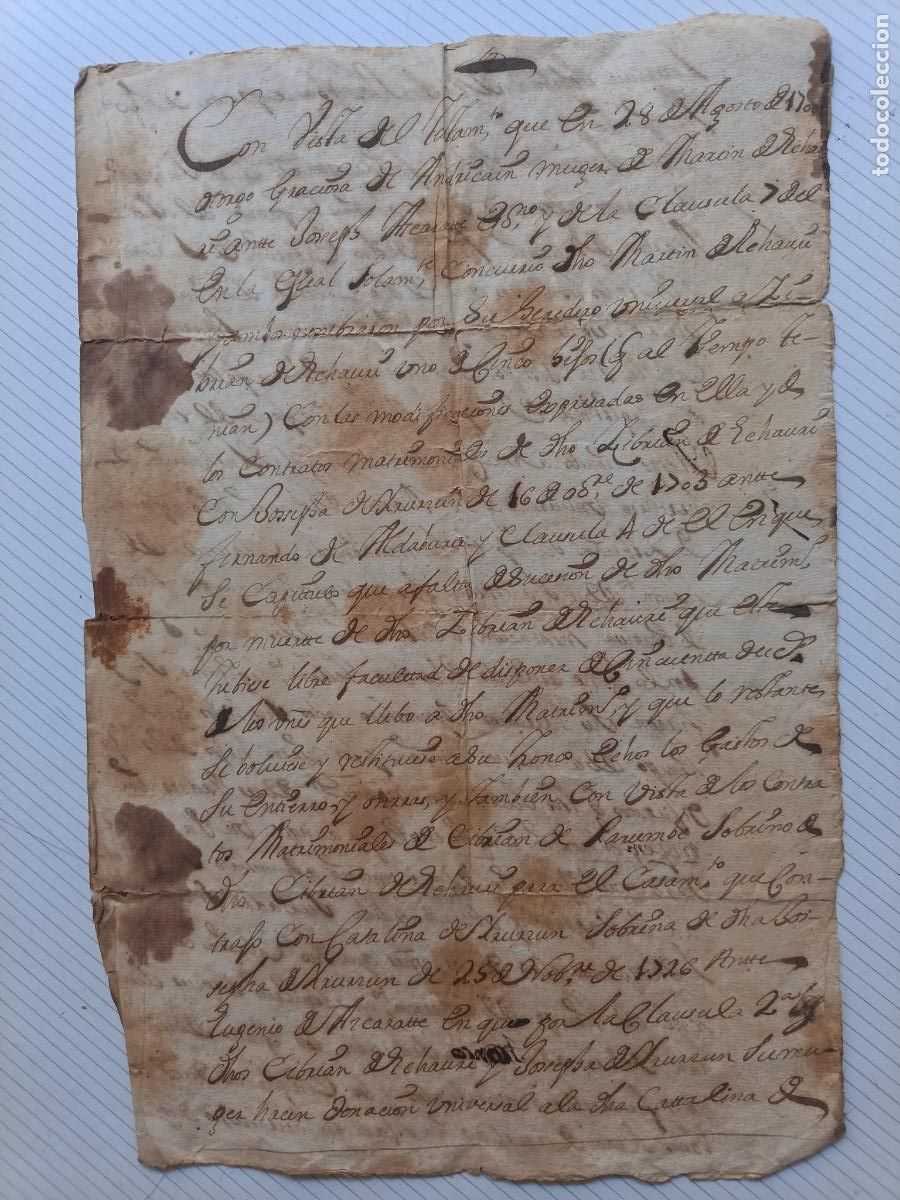 Con Vista de el Testam.to que en 28 de Agosto de 170
otorgo Graciosa de Andricain muger de Martin de Echa
ri antte Joseph Azcaratte Es.no, y de la Clausula 7 del
En la qual solam.te Concurrio dho Martin de Echauri
y ambos nombraron por su heredero universal a Zi-
brian de Echauri uno de Cinco hijos (q al tiempo te-
nian) Con las modificaciones expresadas en ella y de
los Contratos matrimoniales de dho Zibrian de Echauri
Con Josepha de Irurzun de 16 de de 1703 antte
fernando de Aldabura y Clausula 4 de el en que
se Capitulo que a falta de sucesion de dho Matrim.o
por muertte de dho Zibrian de Echauri que este
tubiese libre facultad de disponer de Cinquentta duc.s
de los que llebo a dho Matrim.o y que lo restante
se bolviese y restituiese a su tronco echos los Gastos de
su entierro, y onrras, y tambien con vista de los contra
tos Matrimoniales de Cibrian de Larumbe Sobrino de
dho Cibrian de Echauri para el Casam.to que Con-
trajo con Catalina de Irurzun sobrina de dha Jos-
sepha de Irurzun de 25 de Nob.re de 1726 Antte
Eugenio de Azcaratte en que por la Clausula 2a
dhos Cibrian de Echauri y Jossepha de Irurzun su mu-
ger hacen donacion universal a la dha Cattalina de
todocoleccion